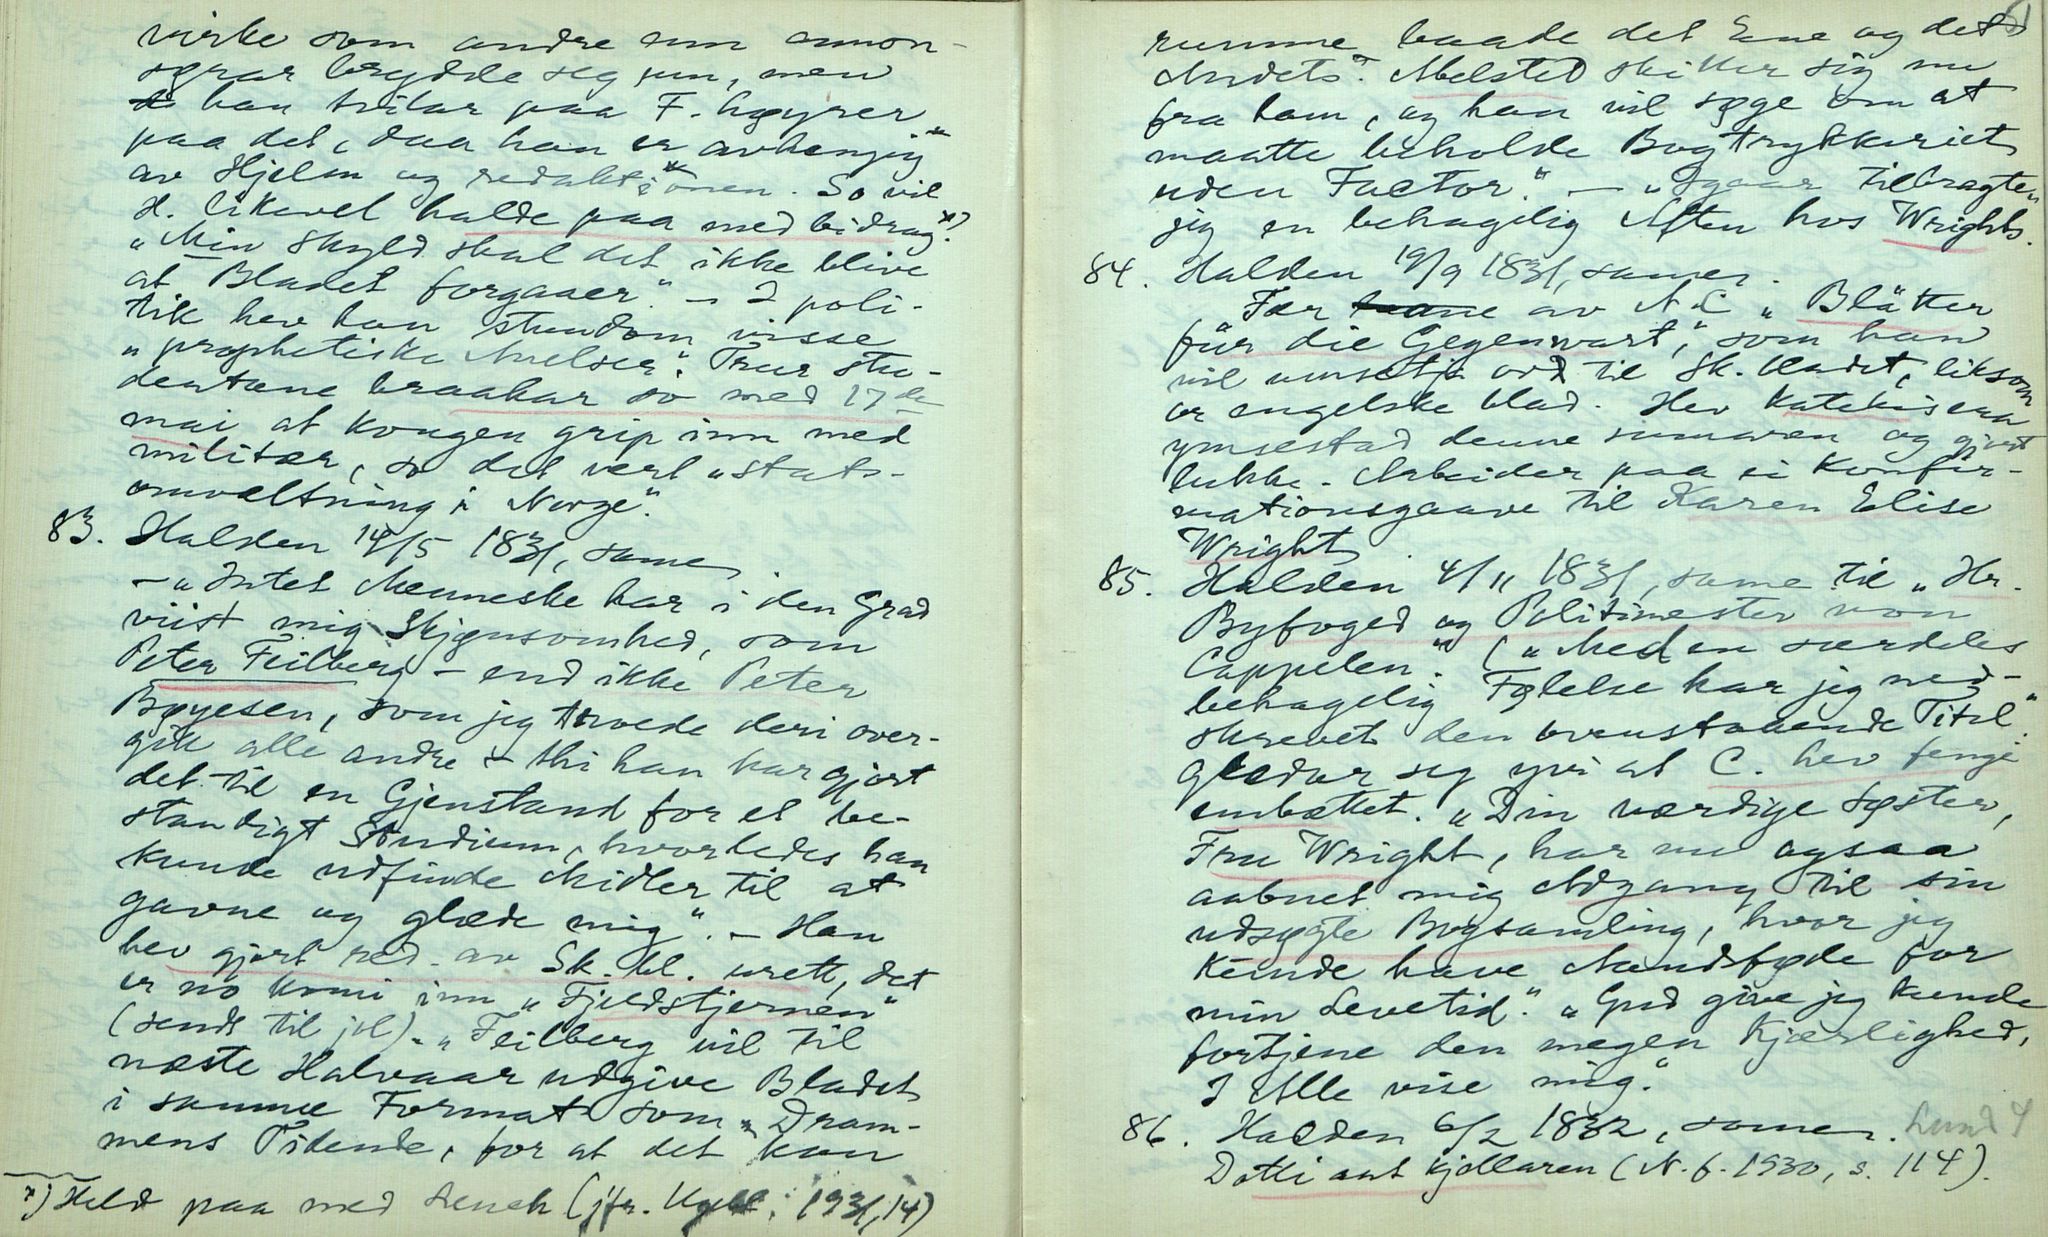 virke som andre enn annon-
sørar brydde seg um, men
han tvilar paa F. høyrer
paa det, daa han er avhengig
av Hjelm og redaktionen. So vil
H. likevel halde paa med bidrag *)
"Min Skyld skal det ikke blive
at Bladet forgaaer." - I poli-
tik hev han stundom visse
"prophetiske Anelser". Trur stu-
dentane braakar so med 17de
mai at kongen grip inn med
militær, so det vert "stats-
omvæltning i Norge".
83. Halden 14/5 1831, same
- "Intet Menneske har i den Grad
viist mig Skjønsomhed, som
Peter Feilberg - end ikke Peter
Bøyesen, som jeg troede deri over-
gik alle andre - thi han har gjort
det til en Gjenstand for et be-
standigt Studium, hvorledes han
kunde udfinde Midler til at
gavne og glæde mig". - Han
hev gjort red. av Sk. bl. urett, det
er no komi inn "Fjeldstjernen"
(sendt til jol). "Feilberg vil til
næste Halvaar udgive Bladet
i samme Format som "Dram-
mens Tidende, for at det kan
*) Held paa med Lench (jfr. 1931, 14)
51
rumme baade det Ene og det
Andet". Melsted skiller sig nu
fra ham, og han vil søge om at
maatte beholde Bogtrykkeriet
uden Factor." - "Igaar tilbragte
jeg en behagelig Aften hos Wrights.
84. Halden 19/9 1831, samen.
Fær av N.C "Blätter
für die Gegenwart", som han
vil umsetja ord til Sk. bladet, liksom
or engelske blad. Hev katekisera
ymsestad denne sumaren og gjort
lukke. Arbeider paa ei Konfir-
mationsgaave til Karen Elise
Wright
85. Halden 4/11 1831, same til "Hr.
Byfoged og Politimester von
Cappelen". ("Med en særdeles
behagelig Følelse har jeg ned-
skrevet den ovenstaaende Titel".
Gledar seg yvi at C. hev fengi
embættet. "Din værdige Søster,
Fru Wright, har nu ogsaa
aabnet mig Adgang til sin
udsøgte Bogsamling, hvor jeg
kunde have Aandsføde for
min Levetid". "Gud give jeg kunde
fortjene den megen Kjærlighed,
I Alle vise mig."
86. Halden 6/2 1832, samen. Lund
Dotti aat kjellaren (N.f. 1930, s. 114).